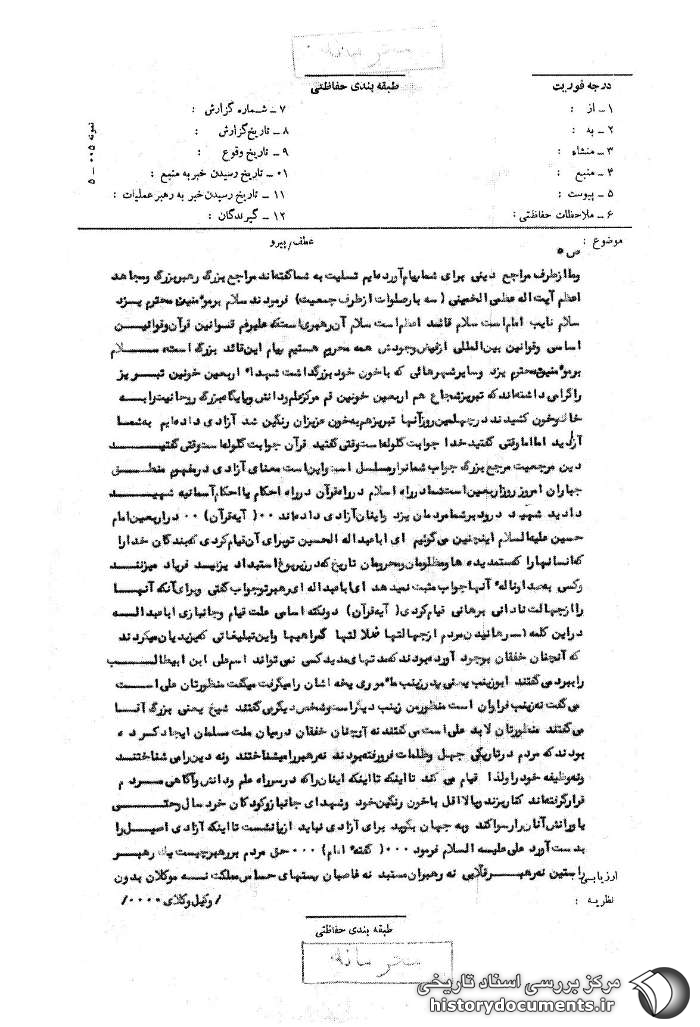 محرمانه
درجه فوریت
طبقه بندی حفاظتی
۱ – از :
۷ – شماره گزارش :
۲ – به :
۸ – تاریخ گزارش :
۳ – منشاء :
۹ – تاریخ وقوع :
۴ – منبع :
۱۰ – تاریخ رسیدن خبر به منبع :
۵ – پیوست :
۱۱ – تاریخ رسیدن خبر به رهبر عملیات :
۶ – ملاحظات حفاظتی :
۱۲ – گیرندگان :
نمونه ۰۰۵ – ۵
موضوع :
عطف / پیرو
ص ۵
وما ازطرف مراجع دینی برای شما پیام آورده‌ایم تسلیت به شما گفته‌اند مراجع بزرگ رهبر بزرگ ومجاهد
اعظم آیت اله عظمی الخمینی ( سه بار صلوات ازطرف جمعیت ) فرمودند سلام برمو°منین محترم یزد
سلام نایب امام است سلام قائد اعظم است سلام آن رهبری است که علیرغم قوانین قرآن وقوانیـن
اساسی وقوانین بین المللی ازفیض وجودش همه محروم هستیم پیام این قائد بزرگ است، سـلام
برمو°منین محترم یزد وسایر شهرهائی که باخون خود بزرگداشت شهداء اربعین خونین تبـریز
راگرامی داشته‌اند که تبریز شجاع هم اربعین خونین قم مرکزعلم ودانش وپایگاه بزرگ روحانیت رابـه
خاک وخون کشیدند درچهلمین روزآنها تبریزهم به خون عزیزان رنگین شد آزادی داده‌ایم به شما
آزادید اما وقتی گفتید خدا جوابت گلوله است وقتی گفتید قرآن جوابت گلوله است وقتی گفتیـد
دین مرجعیت مرجع بزرگ جواب شمارا مسلسل است واین است معنای آزادی درمفهوم منطـق
جباران امروز روز اربعین است شما درراه اسلام درراه قرآن درراه احکام یا احکام آسمانیه شهیـد
دادید شهید درود برشما مردمان یزد وایفان آزادی داده‌اند ۰۰ ( آیه قرآن ) ۰۰ دراربعین امام
حسین علیه السلام اینچنین می‌گوئیم ای اباعبداله الحسین توبرای آن قیام کردی که بندگان خدا را
که انسانها را که ستمدیده‌ها ومظلومان ومحرومان تاریخ که درزیر یوغ استبداد یزیـد فریاد میزننـد
وکسی به صدا وناله آنها جواب مثبت نمیدهد ای اباعبداله ای رهبر توجواب گفتی وبرای آنکه آنهـا
را ازجهالت نادانی برهانی قیام کردی ( آیه قرآن ) دونکته اساسی علت قیام وجانبازی اباعبدالـه
دراین کلمه ( سر رهانیدن مردم ازجهالتها ضلالتها گمراهیها واین تبلیغاتی که یزیدیان میکردند
که آنچنان خفقان بوجود آورده بودند که مدتهای مدید کسی نمی تواند اسم علی ابن ابیطالـب
را ببرد می گفتند ابوزینب یعنی پدر زینب ما°موری یخه اشان رامیگرفت میگفت منظورتان علی اسـت
می گفت نه زینب فراوان است منظور من زینب دیگر است وشخص دیگر می گفتند شیخ یعنی بزرگ آنـا
می گفتند منظورتان لابد علی است می گفتند نه آنچنان خفقان درمیان ملت مسلمان ایجاد کـرده
بودند که مردم درتاریکی جهل وظلمات فرورفته بودند نه رهبر رامیشناختند ونه دین رامی شناختنـد
ونه وظیفه خود را ولذا قیام می کند تا اینکه تا اینکه اینان را که درسر راه علم ودانش وآگاهی مـردم
قرار گرفته‌اند کنار بزند ویا لااقل باخون رنگین خود وشهدای جانباز وکودکان خرد سال وحتـی
یاورانش آنان را رسوا کند وبه جهان بگوید برای آزادی نباید ازپا نشست تا اینکه آزادی اصیـل را
بدست آورد علی علیـه السلام فرمود ۰۰۰ ( گفته امام ) ۰۰۰ حق مردم بررهبر چیست یک رهبـر
راستین نه رهبـر قلابی نه رهبران مستبد نه غاصبان پستهای حساس مملکت نـه موکلان بدون
وکیل وکلای ۰۰۰۰ /
ارزیابی
نظریه :
طبقه بندی حفاظتی
محرمانه
مرکز بررسی اسناد تاریخی
historydocuments.ir